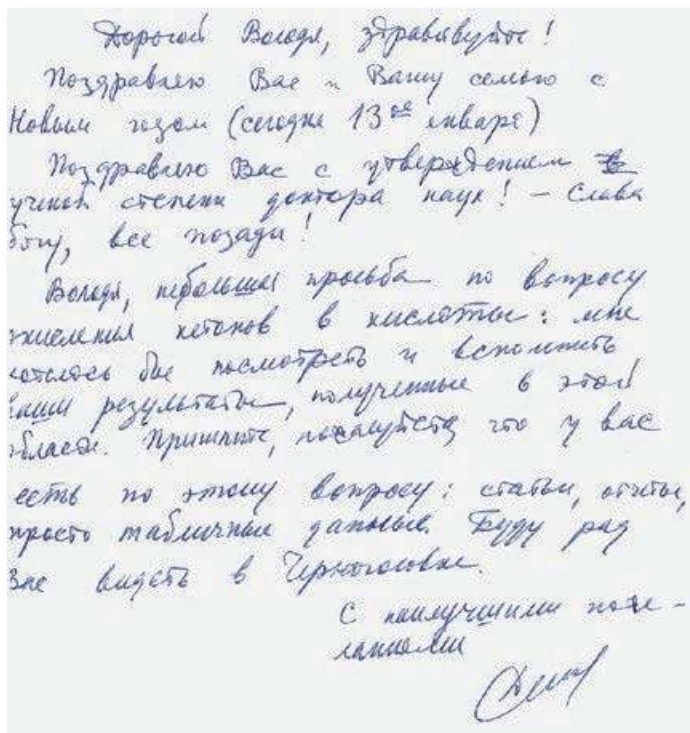 Дорогой Володя, здравствуйте!
Поздравляю Вас и Вашу семью с
Новым годом (сегодня 13ое января)
Поздравляю Вас с утверждением в
ученой степени доктора наук! – Слава
богу, все позади!
Володя, небольшая просьба по вопросу
окисления кетонов в кислоты: мне
хотелось бы посмотреть и вспомнить
ваши результаты, полученные в этой
области. Пришлите, пожалуйста, что у вас
есть по этому вопросу: статьи, отчеты,
просто табличные данные. Буду рад
Вас видеть в Черноголовке.
С наилучшими поже-
ланиями